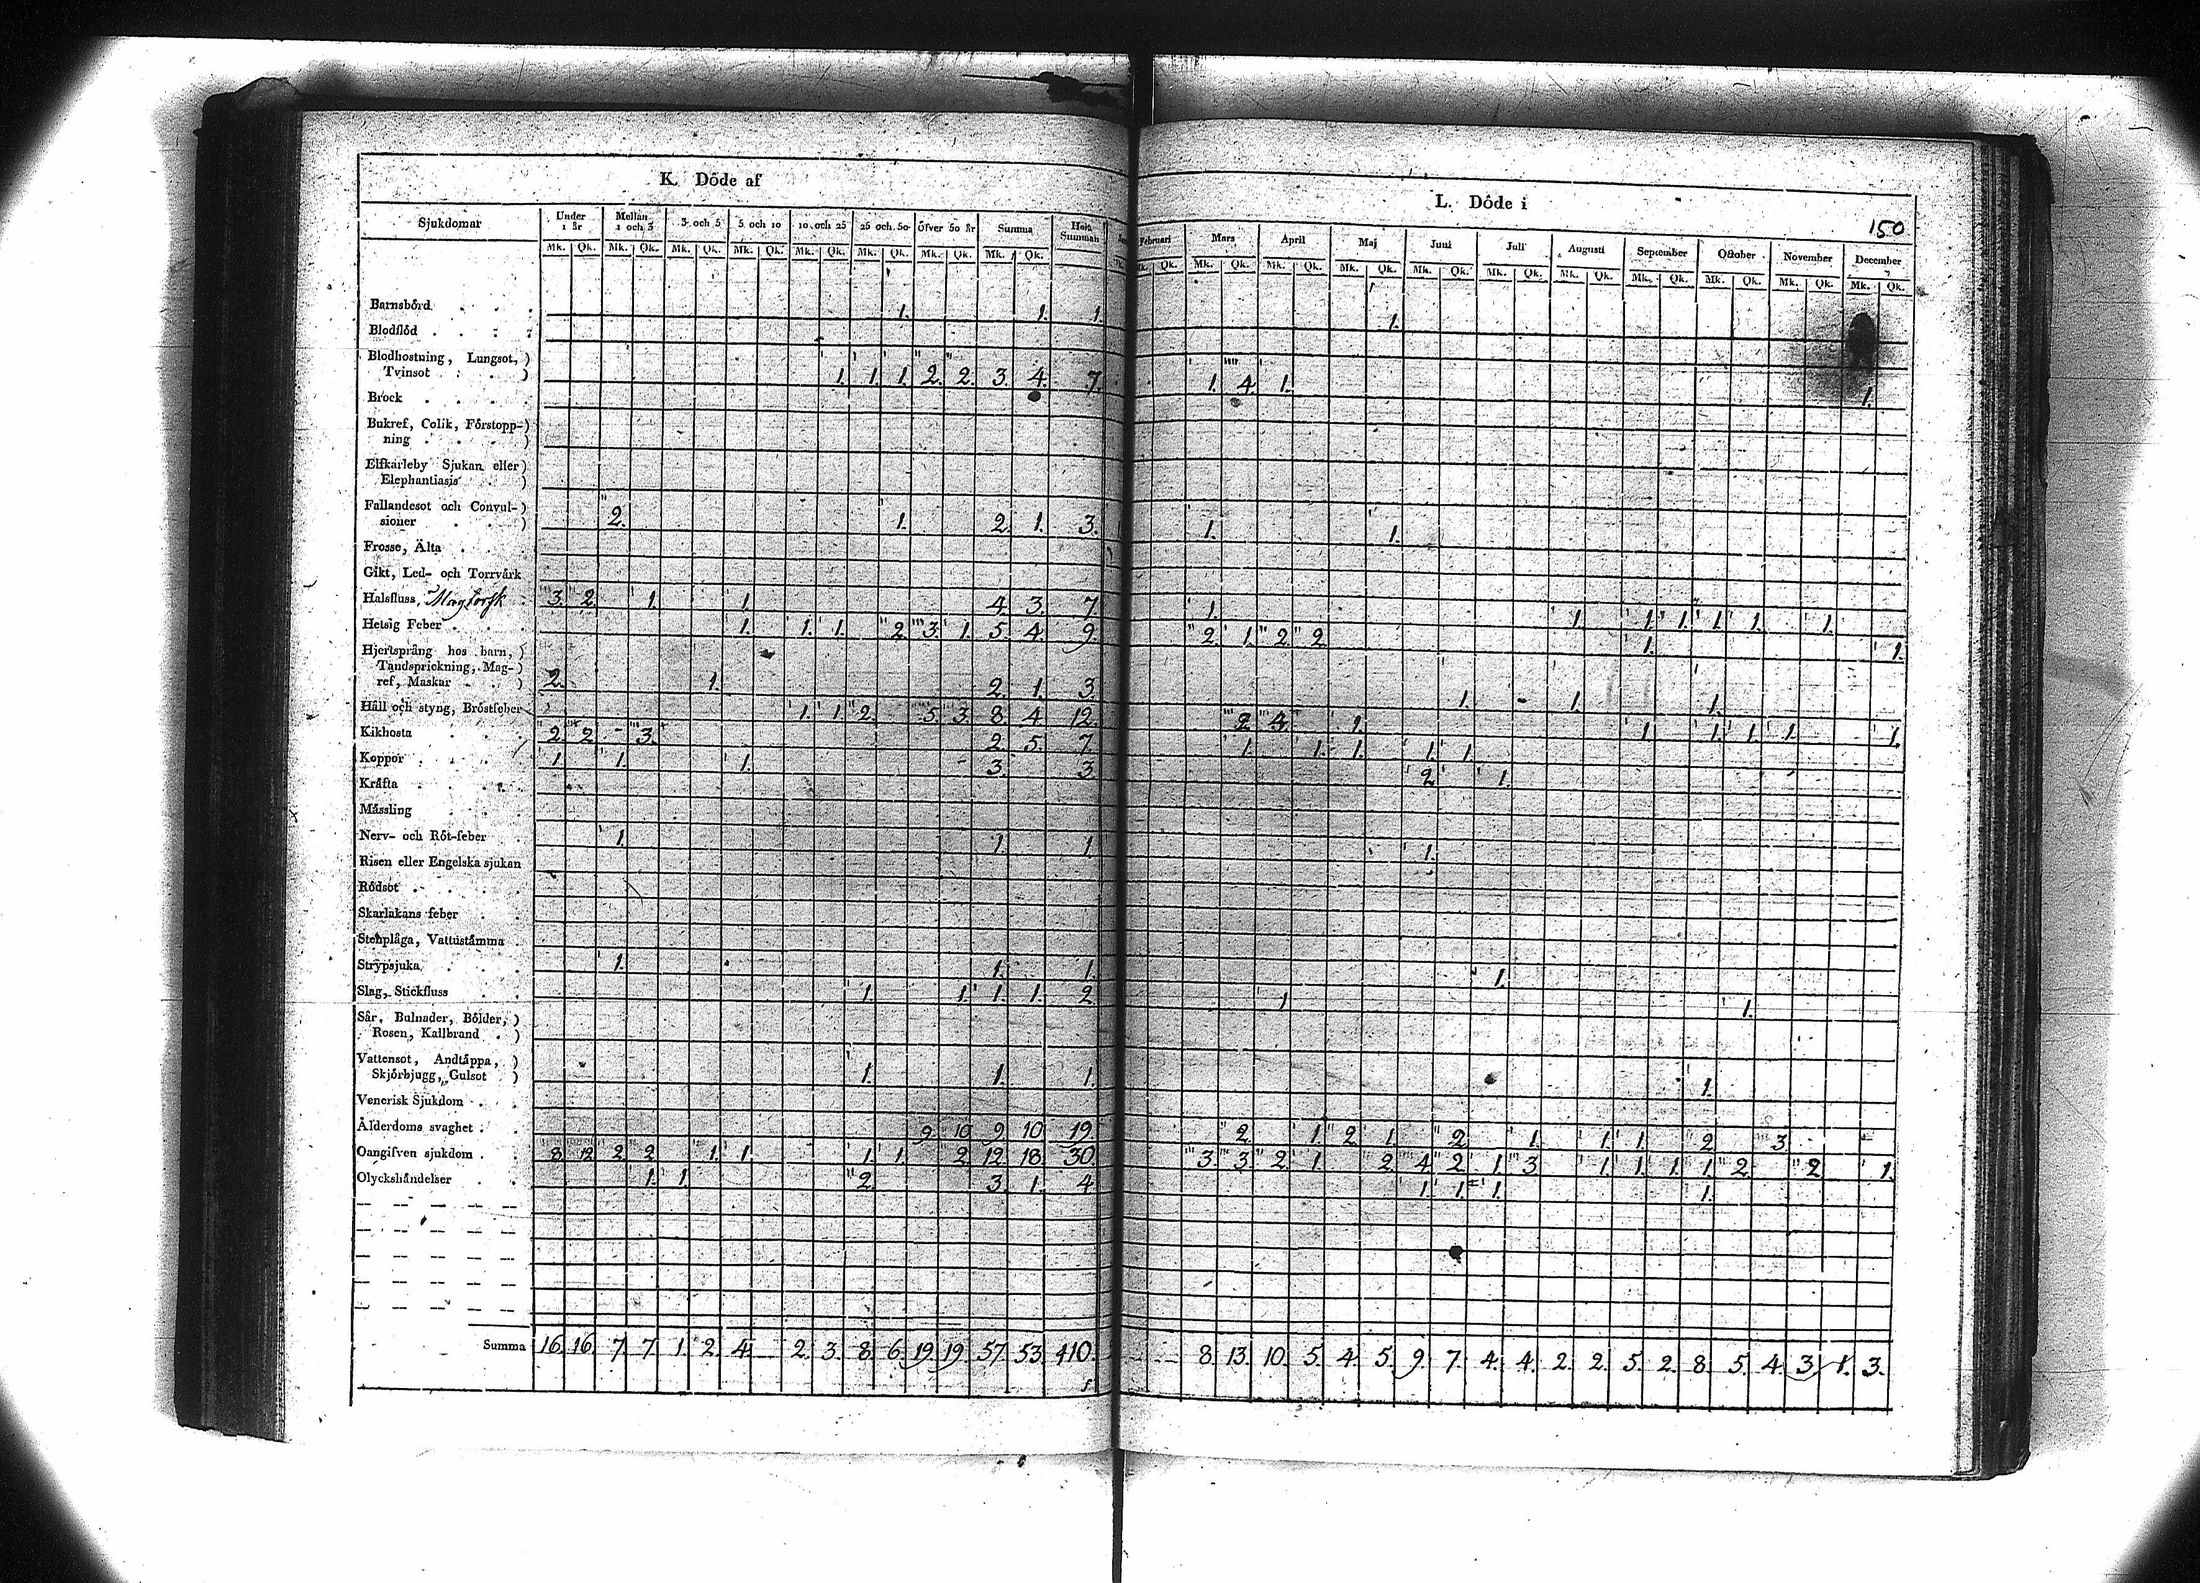 K. Döde af
Sjukdomar Under 1 år Mellan 1 och 3 3 och 5 5 och 10 10 och 25 25 och 50 Öfver 50 år Summa Hela Summan
Mk. Qk. Mk. Qk. Mk. Qk. Mk. Qk. Mk. Qk. Mk. Qk. Mk. Qk. Mk. Qk.
Barnsbörd . . . 1. 1. 1.
Blodflöd . . . .
Blodhostning, Lungsot, )
Tvinsot . . . ) 1. 1. 1. 2. 2. 3. 4. 7.
Brock . . . .
Bukref, Colik, Förstopp-)
ning . . . . )
Elfkarleby Sjukan eller )
Elephantiasis )
Fallandesot och Convul- )
sioner . . ) 2. 1. 2. 1. 3.
Frosse, Älta . . .
Gikt, Led- och Torrvärk
Halsfluss, 3. 2. 1. 1. 4. 3. 7.
Hetsig Feber . . . 1. 1. 1. 2. 3. 1. 5. 4. 9.
Hjertsprång hos barn, )
Tandsprickning, Mag- )
ref, Maskar . . ) 2. 1. 2. 1. 3.
Håll och styng, Bröstfeber 1. 1. 2. 5. 3. 8. 4. 12.
Kikhosta . . . 2. 2. 3. 2. 5. 7.
Koppor . . . . 1. 1. 1. 3. 3.
Kräfta . . . .
Mässling . . .
Nerv- och Röt-feber 1. 1. 1.
Risen eller Engelska sjukan
Rödsot . . . .
Skarlakans feber . .
Stenplåga, Vattustämma .
Strypsjuka . . . 1. 1. 1.
Slag, Stickfluss . . 1. 1. 1. 1. 2.
Sår, Bulnader, Bölder, )
Rosen, Kallbrand . )
Vattensot, Andtäppa, )
Skjörbjugg, Gulsot ) 1. 1. 1.
Venerisk Sjukdom . .
Ålderdoms svaghet . . 9. 10 9. 10 19.
Oangifven sjukdom . . 8. 12 2. 2. 1. 1. 1. 1. 2. 12. 18. 30.
Olyckshändelser . . 1. 1. 2. 3. 1. 4.
Summa 16. 16. 7. 7. 1. 2. 4. 2. 3. 8. 6. 19. 19. 57. 53. 110.
L. Döde i
150
Februari Mars April Maj Juni Juli Augusti September October November December
Mk. Qk. Mk. Qk. Mk. Qk. Mk. Qk. Mk. Qk. Mk. Qk. Mk. Qk. Mk. Qk. Mk. Qk. Mk. Qk. Mk. Qk.
1.
1. 4. 1. 1.
1. 1.
1. 1. 1. 1. 1. 1. 1.
2. 1. 2. 2. 1. 1.
1. 1. 1.
2. 4. 1. 1. 1. 1. 1. 1.
1. 1. 1. 1. 1.
2. 1.
1.
1.
1. 1.
1.
2. 1. 2. 1. 2. 1. 1. 1. 2. 3.
3. 3. 2. 1. 2. 4. 2. 1. 3. 1. 1. 1. 1. 2. 2. 1.
1. 1. 1. 1.
8. 13. 10. 5. 4. 5. 9. 7. 4. 4. 2. 2. 5. 2. 8. 5. 4. 3. 1. 3.